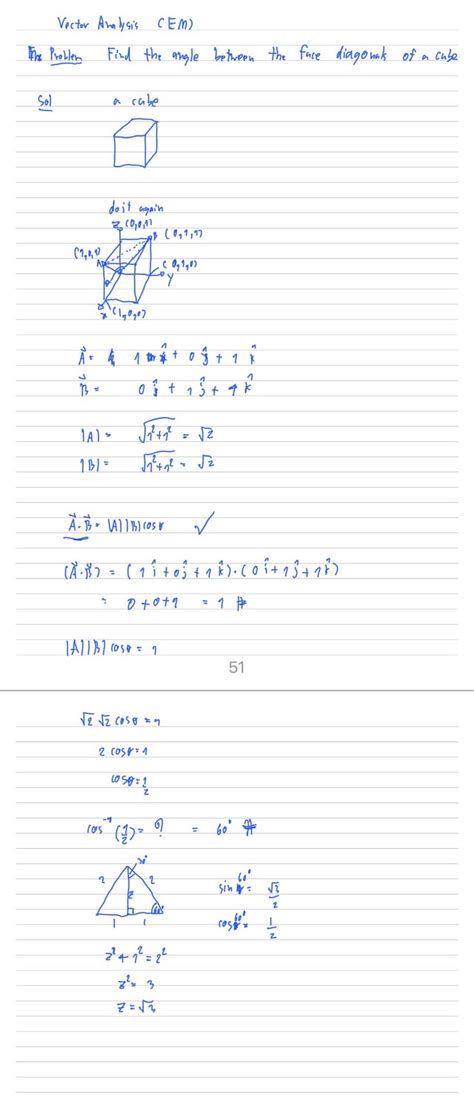 Vector Analysis (EM)
Problem Find the angle between the face diagonals of a cube
Sol a cube
do it again
Z (0,0,1)
B (0,1,1)
(1,0,1)
A
(0,1,0)
Y
X (1,0,0)
A⃗ = 1 î + 0 ĵ + 1 k̂
B⃗ = 0 î + 1 ĵ + 1 k̂
|A| = √(1²+1²) = √2
|B| = √(1²+1²) = √2
A⃗ · B⃗ = |A||B| cos θ ✓
(A⃗·B⃗) = (1 î + 0 ĵ + 1 k̂) · (0 î + 1 ĵ + 1 k̂)
= 0+0+1 = 1 #
|A||B| cos θ = 1
51
√2 √2 cos θ = 1
2 cos θ = 1
cos θ = 1/2
cos⁻¹(1/2) = ? = 60° #
30°
2 2
z
60°
1 1
sin 60° = √3/2
cos 60° = 1/2
z² + 1² = 2²
z² = 3
z = √3